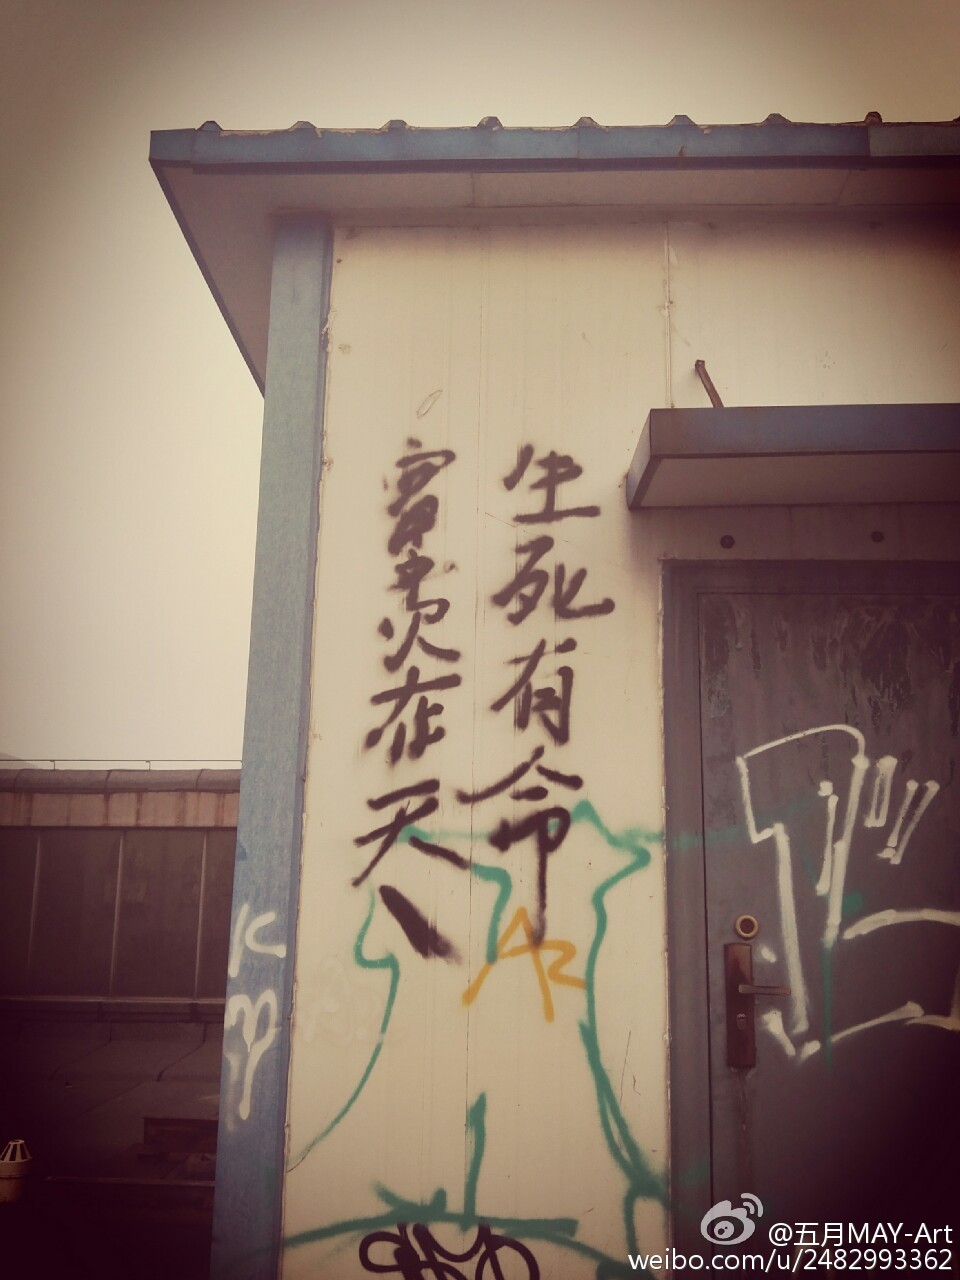 生死有命
富贵在天
@五月MAY-Art
weibo.com/u/2482993362